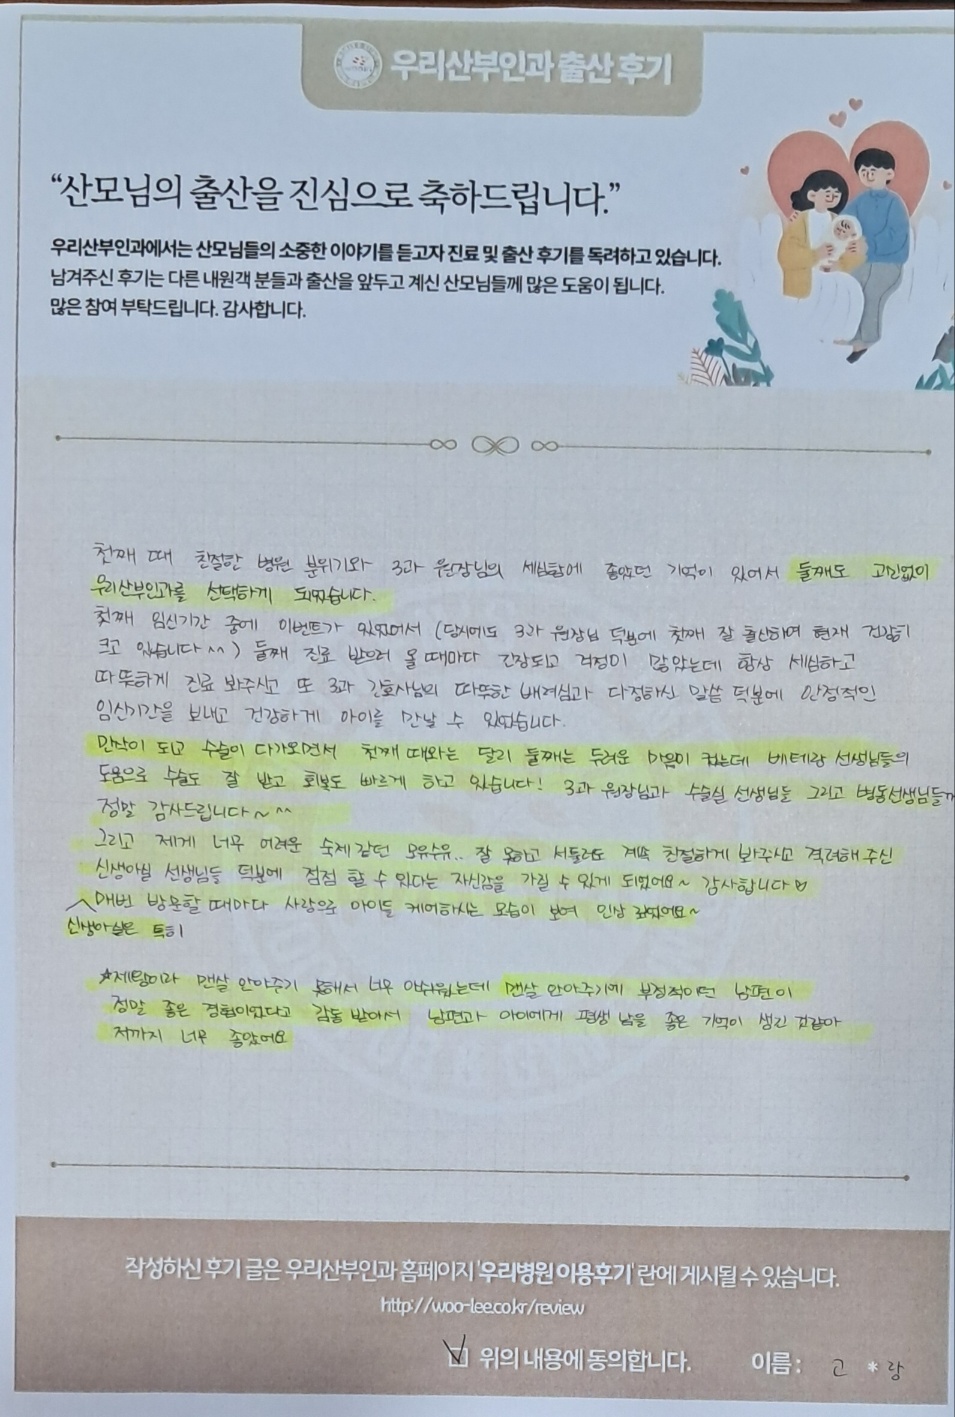 우리산부인과 출산 후기
“산모님의 출산을 진심으로 축하드립니다.”
우리산부인과에서는 산모님들의 소중한 이야기를 듣고자 진료 및 출산 후기를 독려하고 있습니다.
남겨주신 후기는 다른 내원객 분들과 출산을 앞두고 계신 산모님들께 많은 도움이 됩니다.
많은 참여 부탁드립니다. 감사합니다.
첫째 때 친절한 병원 분위기와 3과 원장님의 세심함에 좋았던 기억이 있어서 둘째도 고민없이
우리산부인과를 선택하게 되었습니다.
첫째 임신기간 중에 이벤트가 있었어서 (당시에도 3과 원장님 덕분에 첫째 잘 출산하여 현재 건강히
크고 있습니다^^) 둘째 진료 받으러 올 때마다 긴장되고 걱정이 많았는데 항상 세심하고
따뜻하게 진료 봐주시고 또 3과 간호사님의 따뜻한 배려심과 다정하신 말씀 덕분에 안정적인
임신기간을 보내고 건강하게 아이를 만날 수 있었습니다.
만삭이 되고 수술이 다가오면서 첫째 때와는 달리 둘째는 두려운 마음이 컸는데 베테랑 선생님들의
도움으로 수술도 잘 받고 회복도 빠르게 하고 있습니다! 3과 원장님과 수술실 선생님들 그리고 병동선생님들께
정말 감사드립니다~^^
그리고 제게 너무 어려운 숙제 같던 모유수유.. 잘 못하고 서툴러도 계속 친절하게 봐주시고 격려해 주신
신생아실 선생님들 덕분에 점점 할 수 있다는 자신감을 가질 수 있게 되었어요~ 감사합니다♡
매번 방문할 때마다 사랑으로 아이들 케어하시는 모습이 보여 인상 깊었어요~
신생아실은 특히
☆제왕이라 맨살 안아주기 못해서 너무 아쉬웠는데 맨살 안아주기에 부정적이던 남편이
정말 좋은 경험이었다고 감동 받아서 남편과 아이에게 평생 남을 좋은 기억이 생긴 것같아
저까지 너무 좋았어요
작성하신 후기 글은 우리산부인과 홈페이지 '우리병원 이용후기' 란에 게시될 수 있습니다.
http://woo-lee.co.kr/review
위의 내용에 동의합니다. 이름 : 고 * 랑